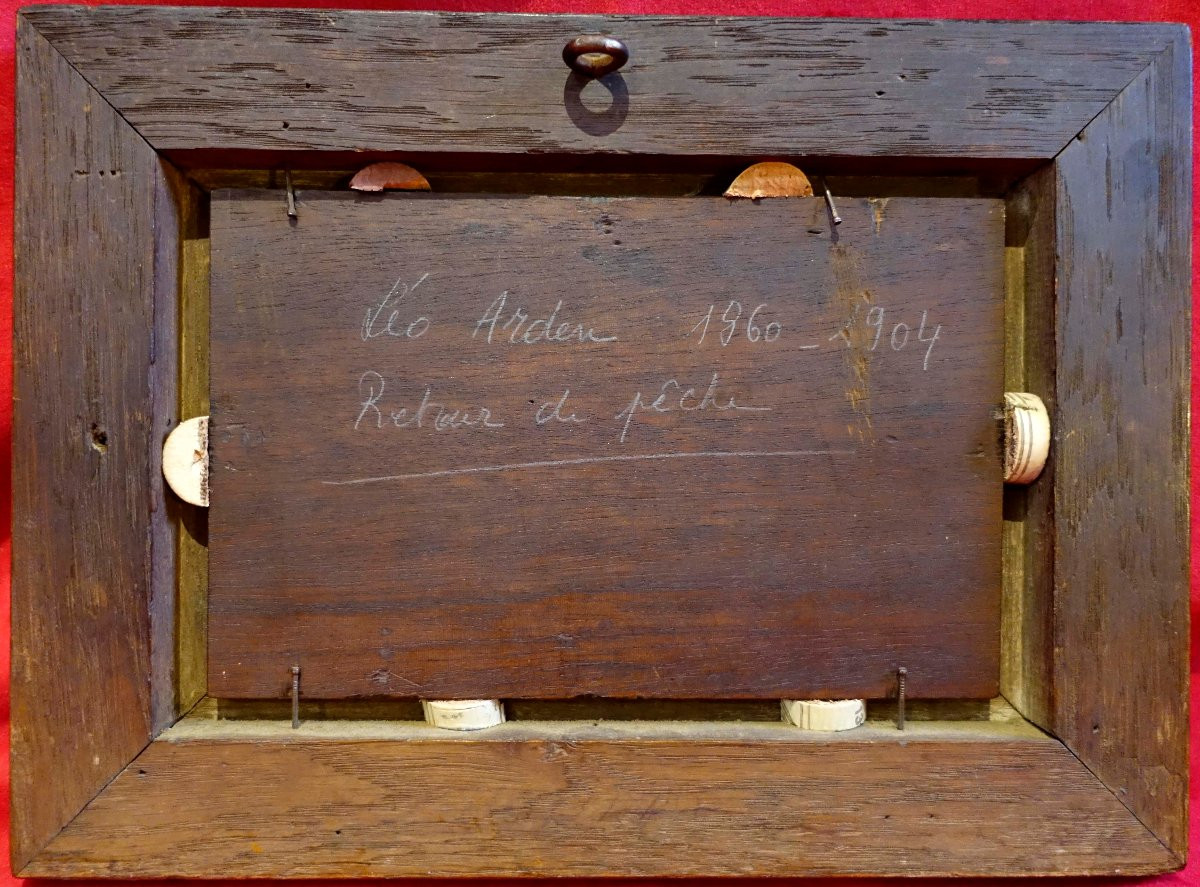 Léo Arden 1860_1904
Retour de pêche